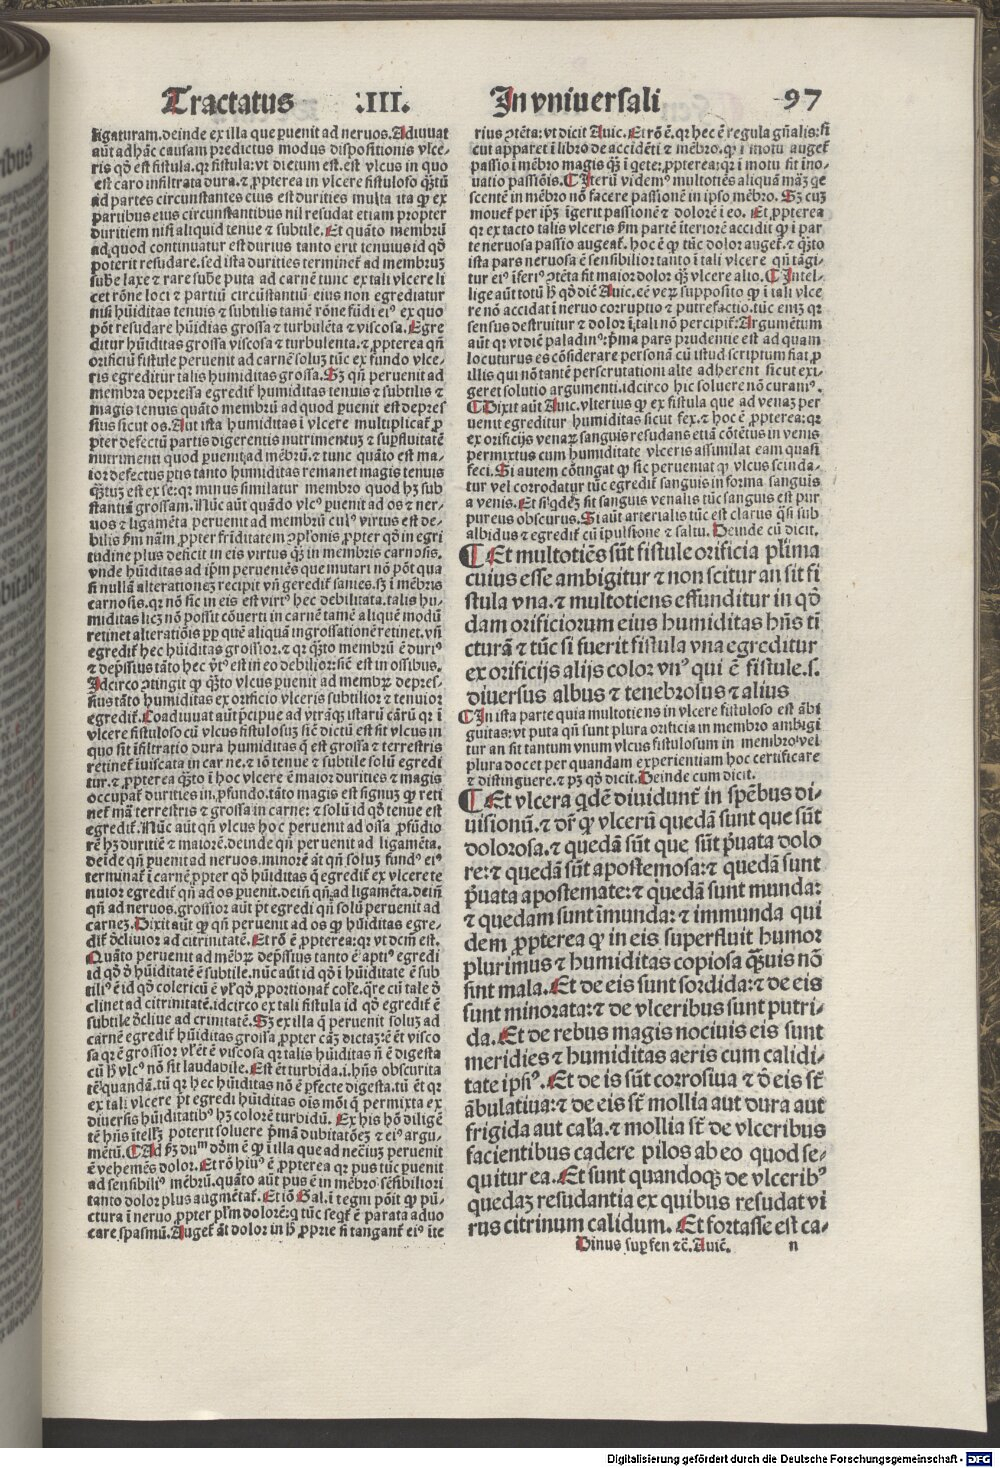 Tractatus .III. In vniuersali 97
ligaturam. deinde ex illa que puenit ad neruos. Adiuuat
aūt ad hāc causam predictus modus dispositionis vlce-
ris qđ est fistula. qr fistula: vt dictum est. est vlcus in quo
est caro infiltrata dura. ⁊ ꝓpterea in vlcere fistuloso q̄ȝtū
ad partes circumstantes eius est durities multa ita ꝙ ex
partibus eius circumstantibus nil resudat etiam propter
duritiem nisi aliquid tenue ⁊ subtile. Et quāto membrū
ad quod continuatur est durius tanto erit tenuius id qđ
poterit resudare. sed ista durities terminet̄ ad membruȝ
sube laxe ⁊ rare sube puta ad carnē tunc ex tali vlcere li
cet rōne loci ⁊ partiū circūstantiū eius non egrediatur
nisi hūiditas tenuis ⁊ subtilis tamē rōne fūdi ei⁹ ex quo
pōt resudare hūidias grossa ⁊ turbulēta ⁊ viscosa. Egre
ditur hūiditas grossa viscosa ⁊ turbulenta. ⁊ ꝓpterea qn̄
orificiū fistule peruenit ad carnē soluȝ tūc ex fundo vlce-
ris egreditur talis humiditas grossa. Sȝ qn̄ peruenit ad
membra depressa egredit̄ humiditas tenuis ⁊ subtilis ⁊
magis tenuis quāto membrū ad quod puenit est depres
sius sicut os. Aut ista humiditas ī vlcere multiplicat̄ ꝓ
pter defectū partis digerentis nutrimentuȝ ⁊ supfluitatē
nutrimenti quod puenit ad mēbrū. ⁊ tunc quāto est ma-
ior defectus ptis tanto humiditas remanet magis tenuis
q̄ȝtuȝ est ex se: qr minus similatur membro quod hȝ sub
stantiā grossam. Nūc aūt quādo vlc⁹ puenit ad os ⁊ ner-
uos ⁊ ligamēta peruenit ad membrū cui⁹ virtus est de-
bilis
tudine plus deficit in eis virtus q̄ȝ in membris carnosis.
vnde hūiditas ad ipm perueniēs que mutari nō pōt qua
si nullā alterationeȝ recipit vn̄ geredit̄ sanies. sȝ ī mēbris
carnosis. qr nō sic in eis est virt⁹ hec debilitata. talis hu-
miditas licȝ nō possit cōuerti in carnē tamē aliquē modū
retinet alteratiōis ꝓp quē aliquā ingrossationē retinet. vn̄
egredit̄ hec hūiditas grossior. ⁊ qr q̄ȝto membrū ē duri⁹
⁊ dep̄ssius tāto hec v̄t⁹ est in eo debilior: sic̄ est in ossibus.
Idcirco ↄtingit ꝙ q̄ȝto vlcus puenit ad membȝ depres-
sius tāto humiditas ex orificio vlceris subtilior ⁊ tenuior
egredit̄. Coadiuuat aūt p̄cipue ad vtrāqȝ istarū cārū qr ī
vlcere fistuloso cū vlcus fistulosuȝ sic̄ dictū est sit vlcus in
quo sit īfiltratio dura humiditas q̄ est grossa ⁊ terrestris
retinet̄ īuiscata in carne. ⁊ iō tenue ⁊ subtile solū egredi
tur. ⁊ ꝓpterea q̄ȝto ī hoc vlcere ē maior durities ⁊ magis
occupat̄ durities in ꝓfundo. tāto magis est signuȝ ꝙ reti
net̄ mā terrestris ⁊ grossa in carne: ⁊ solū id qđ tenue est
egredit̄. Nūc aūt qn̄ vlcus hoc peruenit ad ossa ꝓfūdio
rē hȝ duritiē ⁊ maiorē. deinde qn̄ peruenit ad ligamēta.
deīde qn̄ puenit ad neruos. minorē āt qn̄ soluȝ fund⁹ ei⁹
terminat̄ ī carnē ꝓpter qđ hūiditas q̄ egredit̄ ex vlcere te
nuior egredit̄ qn̄ ad os puenit. dein̄ qn̄ ad ligamēta. dein̄
qn̄ ad neruos. grossior aūt p̄t egredi qn̄ solū peruenit ad
carneȝ. Dixit aūt ꝙ qn̄ peruenit ad os ꝙ hūiditas egre-
dit̄ decliuior ad citrinitatē. Et rō ē ꝓpterea: qr vt dcm̄ est.
Quāto peruenit ad mēbȝ dep̄ssius tanto ē apti⁹ egredi
id qđ đ hūiditatē ē subtile. nūc aūt id qđ ī hūiditate ē sub
tili⁹ ē id qđ colericū ē vl qđ ꝓportionat̄ cole. q̄re cū tale đ
clinet ad citrinitatē. idcirco ex tali fistula id qđ egredit̄ ē
subtile đcliue ad crinitatē. Sȝ ex illa q̄ peruenit soluȝ ad
carnē egredit̄ hūiditas grossa ꝓpter cāȝ dictaȝ: ē ēt visco
sa qr ē grossior vl ēt ē viscosa qr talis hūiditas n̄ ē digesta
cū h̄ vlc⁹ nō sit laudabile. Est ēt turbida. i. hn̄s obscurita
tē quandā. tū qr hec hūiditas nō ē pfecte digesta. tū ēt qr
ex tali vlcere p̄t egredi hūiditas oīs mōī q̄ permixta ex
diuersis hūiditatib⁹ hȝ colorē turbidū. Ex his hō diligē
tē hn̄s ītellȝ poterit soluere p̄mā dubitatōeȝ ⁊ ei⁹ argu-
mētū. ¶ Ad
ē vehemēs dolor. Et rō hui⁹ ē ꝓpterea qr pus tūc puenit
ad sensibili⁹ mēbrū. quāto aūt pus ē in mēbro sēsibiliori
tanto dolor plus augmētat̄. Et iō Gal. ī tegni pōit ꝙ pū-
ctura ī neruo ꝓpter plm̄ dolorē: q̄ tūc seqt̄ ē parata aduo
care spasmū. Auget̄ āt dolor in h̄ ꝓprie si tangant̄ ei⁹ īte
rius ↄtēta: vt dicit Auic. Et rō ē. qr hec ē regula gn̄alis: si
cut apparet ī libro de accidēti ⁊ mēbro. ꝙ ī motu auget̄
passio ī mēbro magis q̄ȝ ī qete: ꝓpterea: qr ī motu fit ino-
uatio passiōis. ¶ Iterū videm⁹ multotiēs aliquā māȝ qe
scentē in mēbro nō facere passionē in ipso mēbro. Sȝ cuȝ
mouet̄ per ipȝ īgerit passionē ⁊ dolorē ī eo. Et ꝓpterea
qr ex tacto talis vlceris s̄m partē īteriorē accidit ꝙ ī par
te neruosa passio augeat̄. hoc ē ꝙ tūc dolor auget̄. ⁊ q̄ȝto
ista pars neruosa ē sensibilior tanto ī tali vlcere qn̄ tāgi-
tur ei⁹ īferi⁹ ↄtēta fit maior dolor q̄ȝ vlcere alio. ¶ Intel-
lige aūt totū h̄ qđ dic̄ Auic. eē veȝ supposito ꝙ ī tali vlce
re nō accidat ī neruo corruptio ⁊ putrefactio. tūc eniȝ qr
sensus destruitur ⁊ dolor ī tali nō percipit̄: Argumētum
aūt qr vt dic̄ paladin⁹: p̄ma pars prudentie est ad quam
locuturus es cōsiderare personā cū istud scriptum fiat ꝓ
illis qui nō tantē perscrutationi alte adherent sicut exi-
geret solutio argumenti. idcirco hic soluere nō curam⁹.
¶ Dixit aūt Auic. vlterius ꝙ ex fistula que ad venaȝ per
uenit egreditur humiditas sicut fex. ⁊ hoc ē ꝓpterea: qr
ex orificijs venaȝ sanguis resudans etiā cōtētus in venis
permixtus cum humiditate vlceris assimilat eam quasi
feci. Si autem cōtingat ꝙ sic perueniat ꝙ vlcus scinda-
tur vel corrodatur tūc egredit̄ sanguis in forma sanguis
a venis. Et siqdeȝ sit sanguis venalis tūc sanguis est pur
pureus obscurus. Si aūt arterialis tūc est clarus q̄si sub
albidus ⁊ egredit̄ cū īpulsione ⁊ saltu. Deinde cū dicit.
¶ Et multotiēs sūt fistule orificia plīma
cuius esse ambigitur ⁊ non scitur an sit fi
stula vna. ⁊ multotiens effunditur in qđ
dam orificiorum eius humiditas hn̄s tī
cturā ⁊ tūc si fuerit fistula vna egreditur
ex orificijs alijs color vn⁹ qui ē fistule. s.
diuersus albus ⁊ tenebrosus ⁊ alius
¶ In ista parte quia multotiens in vlcere fistuloso est ābi
guitas: vt puta qn̄ sunt plura orificia in membro ambigi
tur an sit tantum vnum vlcus fistulosum in membro vel
plura docet per quandam experientiam hoc certificare
⁊ distinguere. ⁊ pȝ qđ dicit. Deinde cum dicit.
¶ Et vlcera qdē diuidunt̄ in spēbus di-
uisionū. ⁊ dr̄ ꝙ vlcerū quedā sunt que sūt
dolorosa. ⁊ quedā sūt que sūt p̄uata dolo
re: ⁊ quedā sūt apostemosa: ⁊ quedā sunt
p̄uata apostemate: ⁊ quedā sunt munda:
⁊ quedam sunt īmunda: ⁊ immunda qui
dem ꝓpterea ꝙ in eis superfluit humor
plurimus ⁊ humiditas copiosa q̄ȝuis nō
sint mala. Et de eis sunt sordida: ⁊ de eis
sunt minorata: ⁊ de vlceribus sunt putri-
da. Et de rebus magis nociuis eis sunt
meridies ⁊ humiditas aeris cum calidi-
tate ipsi⁹. Et de is sūt corrosiua ⁊ đ eis st̄
ābulatiua: ⁊ de eis st̄ mollia aut dura aut
frigida aut cala. ⁊ mollia st̄ de vlceribus
facientibus cadere pilos ab eo quod se-
quitur ea. Et sunt quandoqȝ de vlcerib⁹
quedaȝ resudantia ex quibus resudat vi
rus citrinum calidum. Et fortasse est ca-
Dinus sup fen ⁊c̄. Auic̄. n
Digitalisierung gefördert durch die Deutsche Forschungsgemeinschaft - DFG